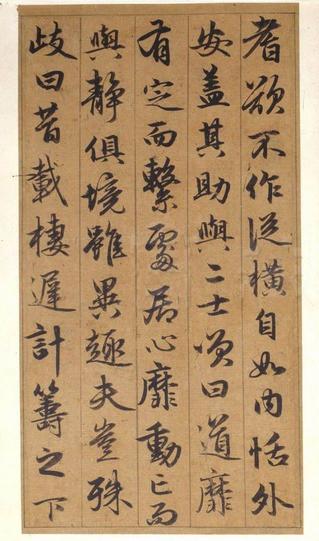 耆欲不作從橫自如内恬外
安盖其助與二士頌曰道靡
有定而繫處居心靡動已而
與靜俱境雖異趣夫豈殊
歧曰昔載棲遲計籌之下